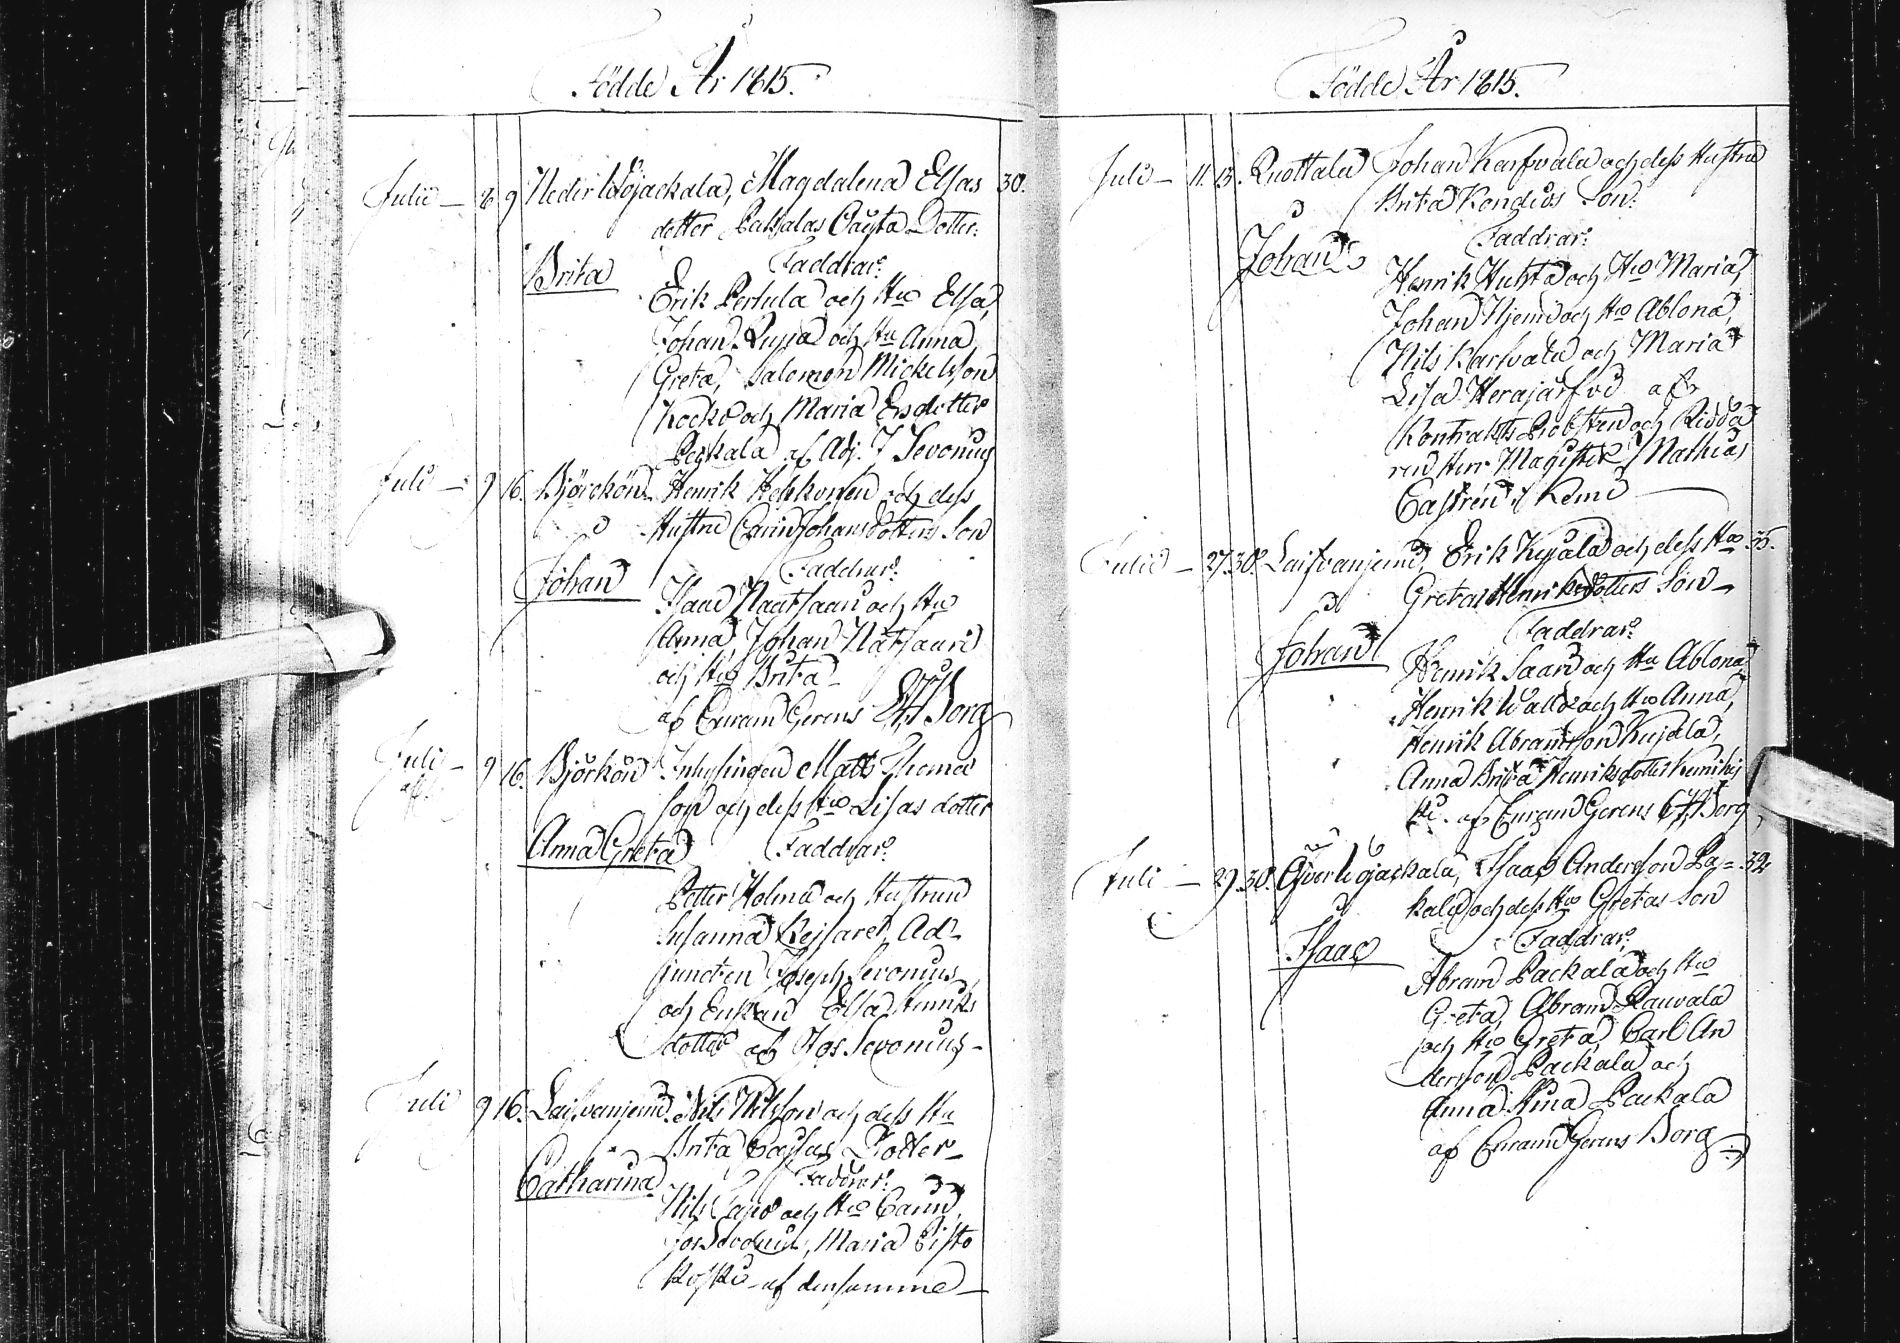 Födde År 1815.
Julii — 8 9 Neder Uojackala, Magdalena Elsas 30.
dotter Packalas Dotter.
Brita Faddrar:
Erik Pertula och Hu Elsa,
Johan och Hu Anna
Greta, Salomon Mickelsson
Kocko och Maria Ersdotter
Packala af Adj. J Sevonius
Juli — 9 16. Björckön Henrik och dess
Hustru Carin Johansdotters Son
Johan Faddrar:
Isaac Naatsaari och Hu
Anna, Johan Natsaari
och Hu Brita
af Curam Gerens Borg
Juli — 9 16. Björkön Inhysingen Matts Thomas
son och dess Hu Lisas dotter
Anna Greta Faddrar:
Petter Holma och Hustrun
Susanna Keisaret, Ad-
juncten Joseph Sevonius
och Enkan Elsa Henriks
dotter af Jos Sevonius
Juli 9 16. Laisvaniemi. Nils Nilsson och dess Hu
Brita Cajsas Dotter
Catharina Faddrar:
Nils och Hu Carin,
Jos Sevonius, Maria Pisto
koski af densamma
Födde År 1815.
Juli — 11. 13. Ruottala Johan Karfvala och dess Hustru
Brita Son.
Johan Faddrar:
Henrik Huhta och Hu Maria,
Johan Niemi och Hu Ablona,
Nils Karfvala och Maria
Lisa Herajärfvi af
Kontrakts Probsten och Ridda
ren Herr Magister Mathias
Castrén i Kemi
Julii — 27. 30. Laisvaniemi, Erik Kujala och dess Hu 35.
Gretas Henriksdotters Son
Johan Faddrar:
Henrik Saari och Hu Ablona,
Henrik och Hu Anna,
Henrik Abramsson Kujala,
Anna Brita Henriksdotter
af Curam Gerens Borg
Juli — 29. 30. Öfver Uojackala, Isaac Andersson Pa= 32
kala och dess Hu Gretas Son
Isaac Faddrar:
Abram Packala och Hu
Greta, Abram Rauvala
och Hu Greta, Carl An
dersson Packala och
Anna Stina Packala
af Curam Gerens Borg